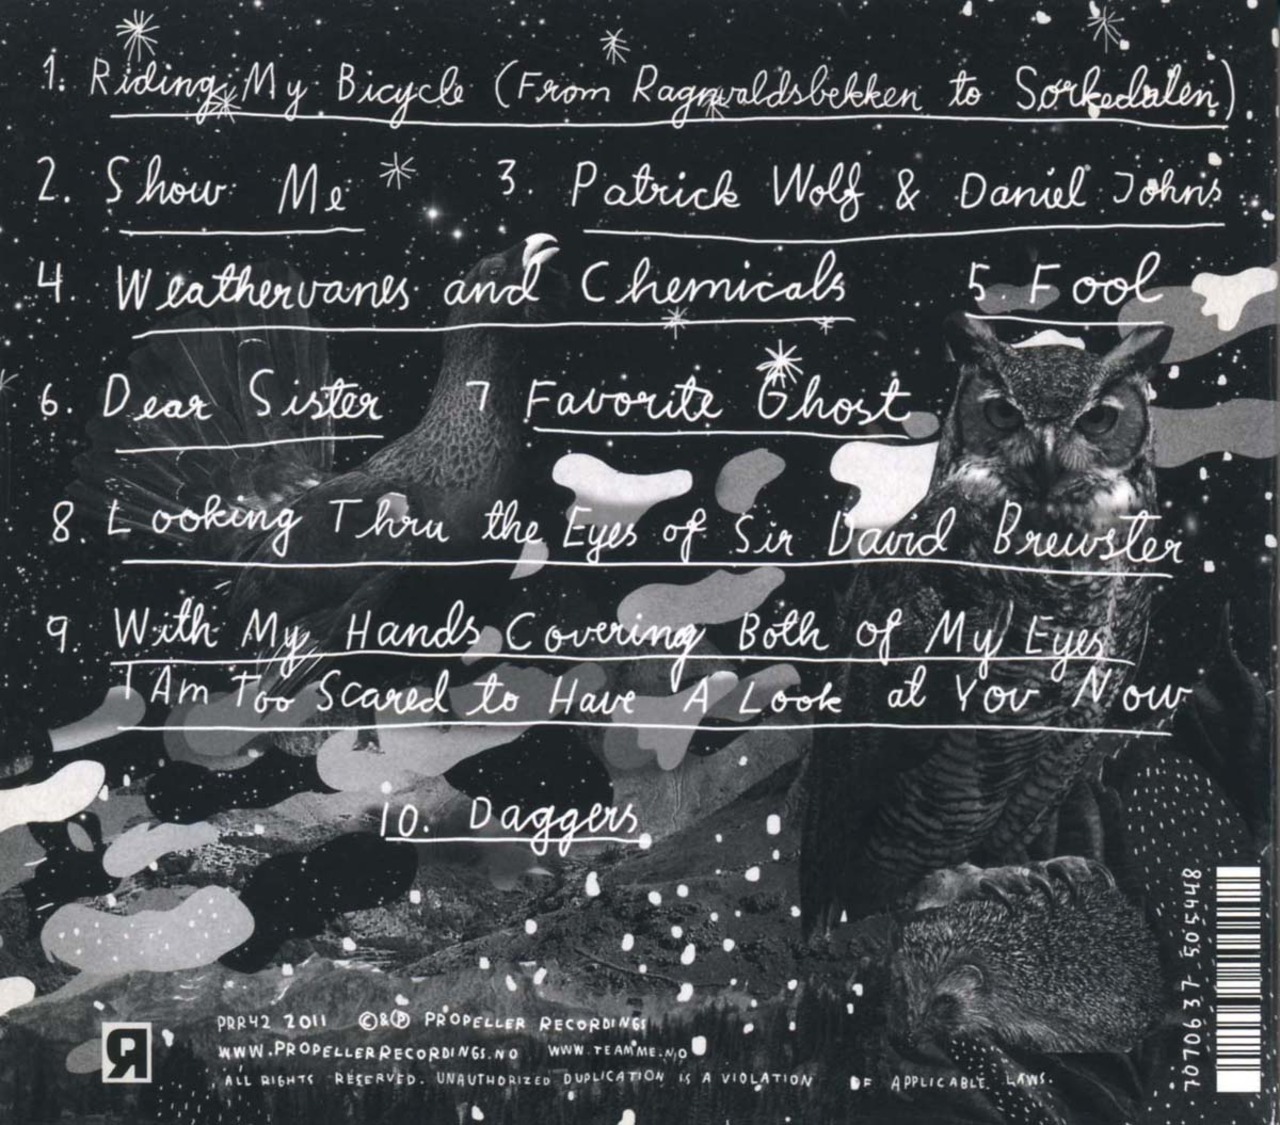 1. Riding My Bicycle (From Ragnvaldsbekken to Sørkedalen)
2. Show Me 3. Patrick Wolf & Daniel Johns
4. Weathervanes and Chemicals 5. Fool
6. Dear Sister 7 Favorite Ghost
8. Looking Thru the Eyes of Sir David Brewster
9. With My Hands Covering Both of My Eyes
I Am Too Scared to Have A Look at You Now
10. Daggers
PRR42 2011 ©&℗ PROPELLER RECORDINGS
WWW.PROPELLERRECORDINGS.NO WWW.TEAMME.NO
ALL RIGHTS RESERVED. UNAUTHORIZED DUPLICATION IS A VIOLATION OF APPLICABLE LAWS.
7070637 505448